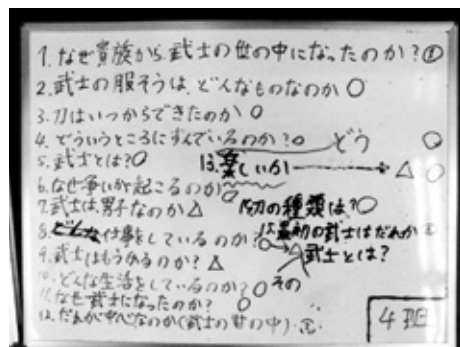 1. なぜ貴族から武士の世の中になったのか?①
2. 武士の服そうは、どんなものなのか○
3. 刀はいつからできたのか○
4. どういうところにすんでいるのか?○ どう ○
5. 武士とは?○
13. 楽しいか △ ○
6. なぜ争いが起こるのか○
7. 武士は男子なのか△
刀の種類は?○
8. どんな仕事をしているのか?○
最初の武士はだれか
9. 武士はもうかるのか?△
△武士とは?
10. どんな生活をしているのか?○ その
11. なぜ武士になったのか?○
12. だれが中心なのか(武士の世の中)
4班